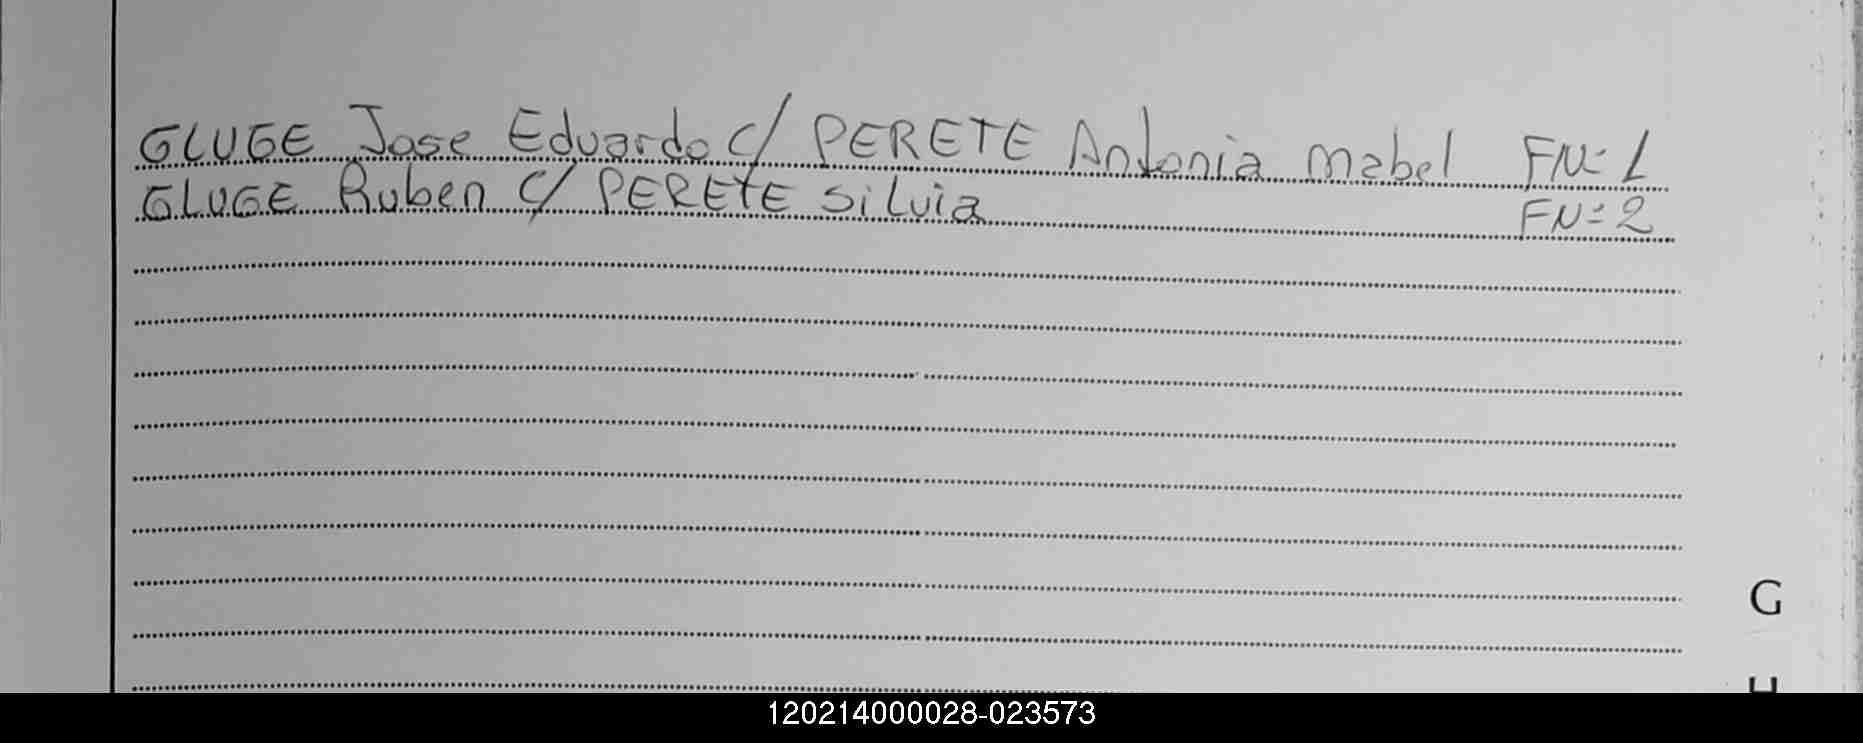 GLUGE Jose Eduardo c/ PERETE Antonia Mabel FN:1
GLUGE Ruben c/ PERETE Silvia FN:2
G
H
120214000028-023573